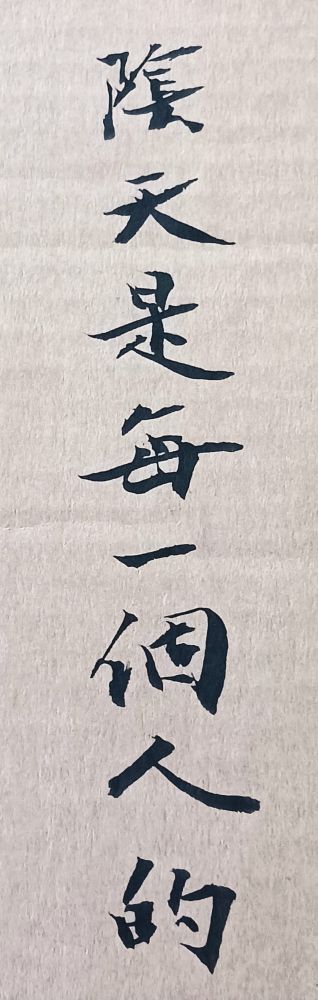 陰天是每一個人的